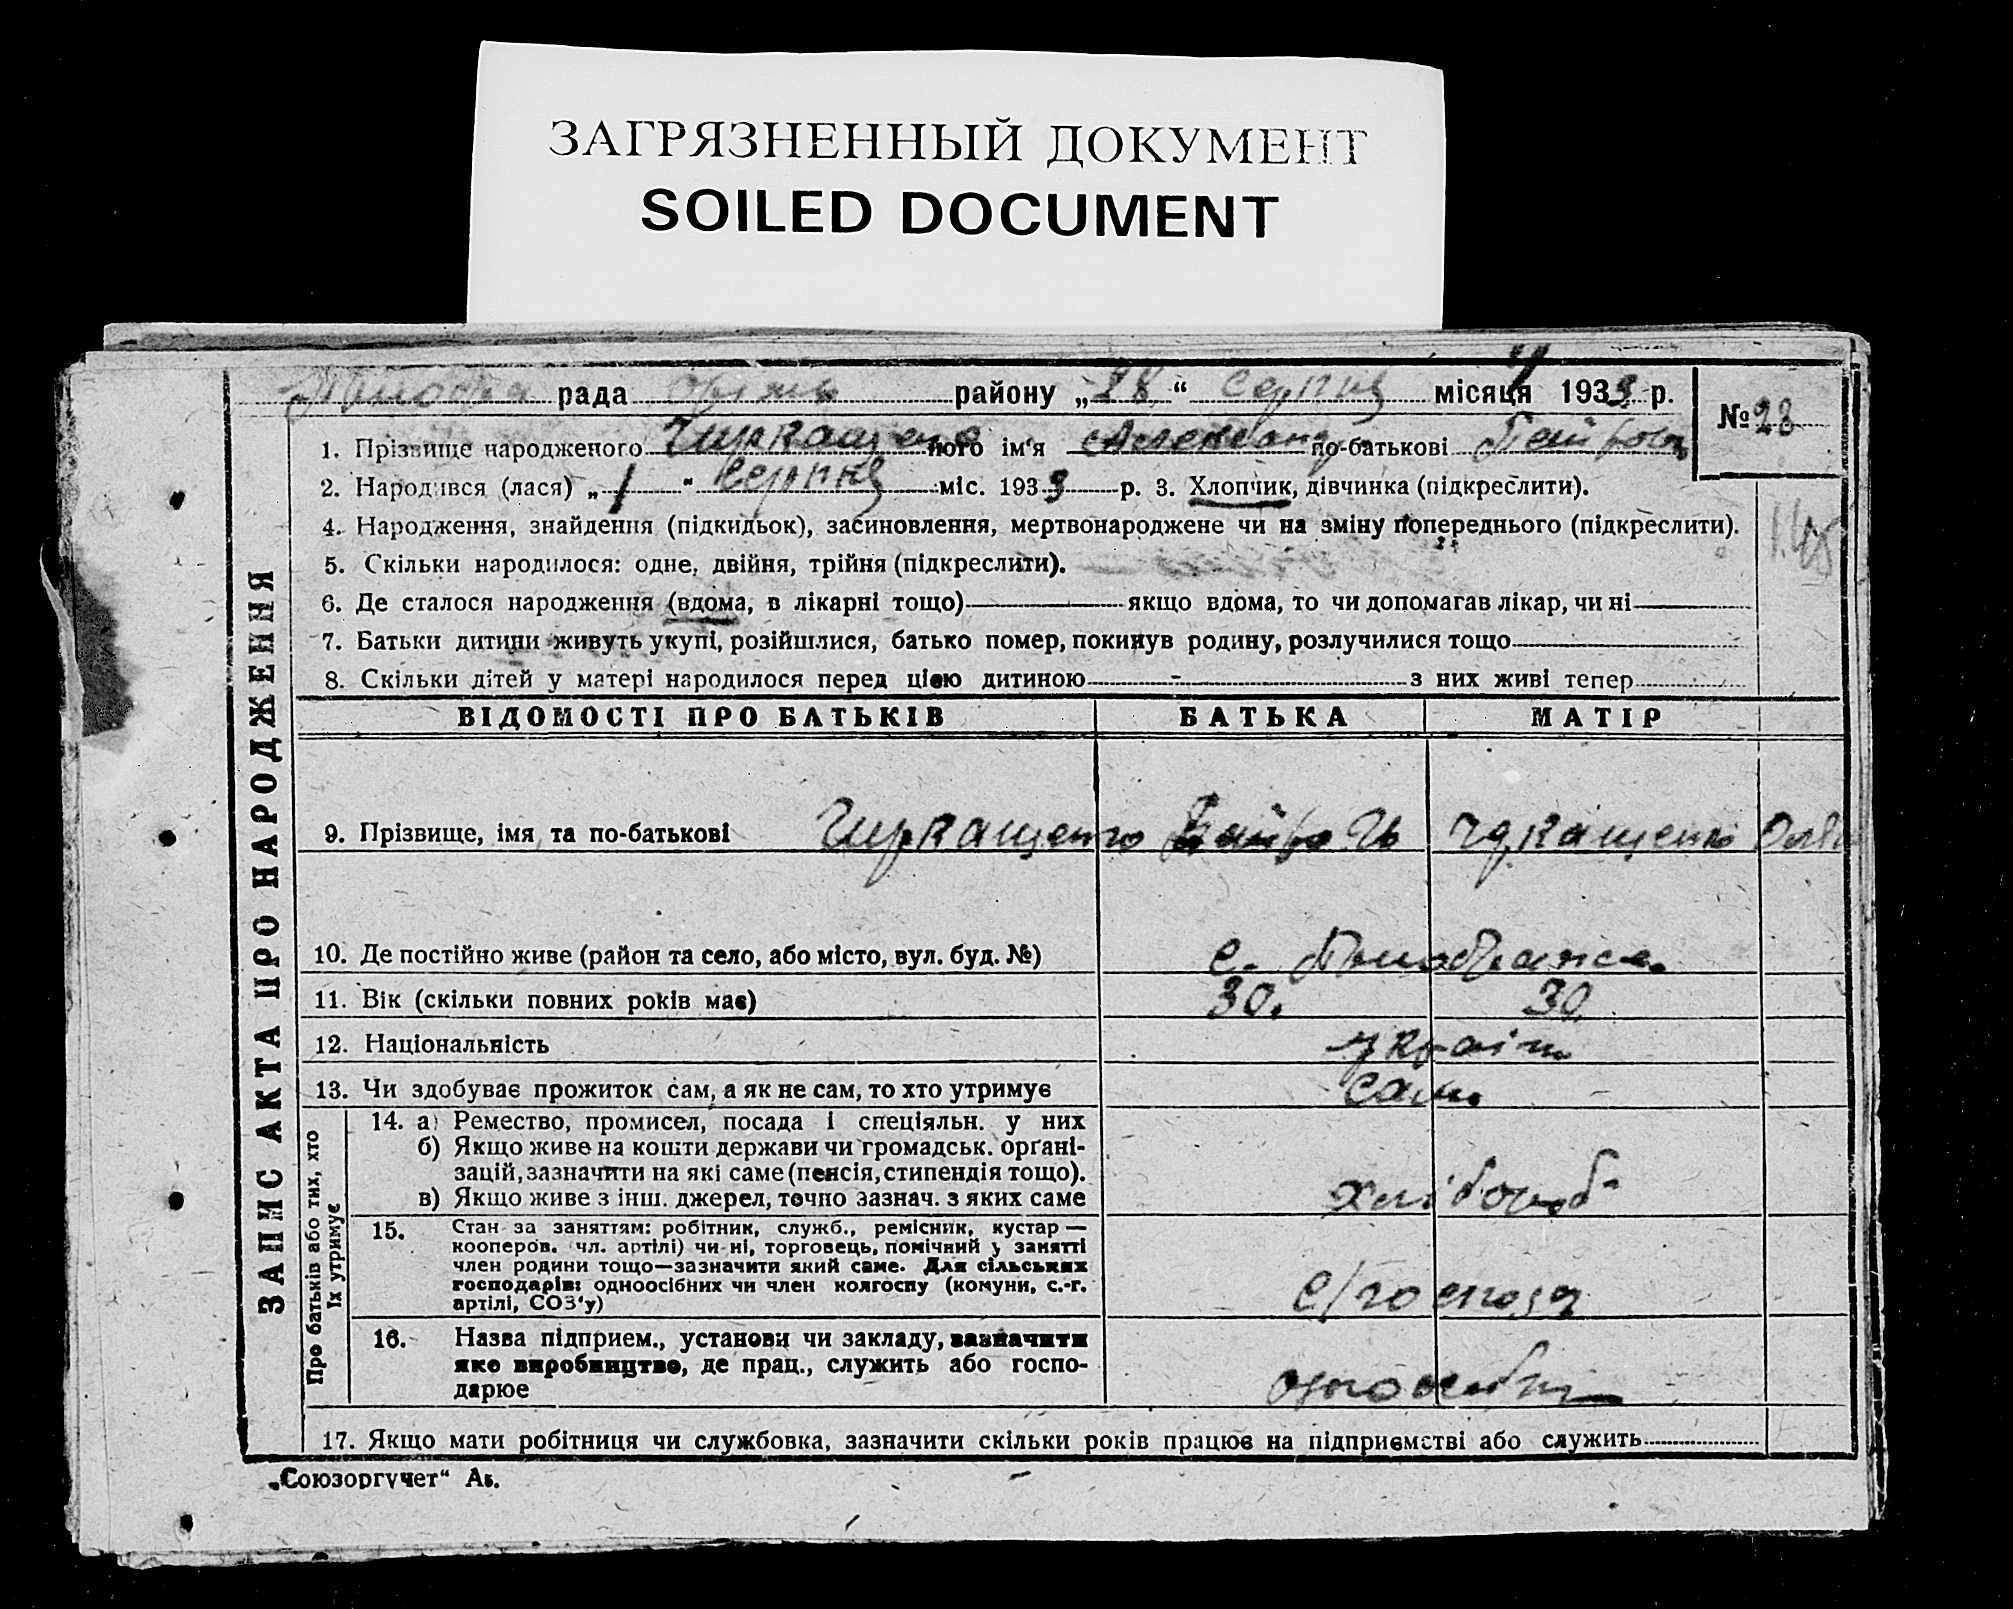 ЗАГРЯЗНЕННЫЙ ДОКУМЕНТ
SOILED DOCUMENT
рада району „28“ серпня місяця 1933 р.
№ 23
1. Прізвище народженого Чиркащенко його ім'я Александр по-батькові Петрович
2. Народився (лася) „1“ серпня міс. 1933 р. 3. Хлопчик, дівчинка (підкреслити).
4. Народження, знайдення (підкидьок), засиновлення, мертвонароджене чи на зміну попереднього (підкреслити).
5. Скільки народилося: одне, двійня, трійня (підкреслити).
6. Де сталося народження (вдома, в лікарні тощо) якщо вдома, то чи допомагав лікар, чи ні
7. Батьки дитини живуть укупі, розійшлися, батько помер, покинув родину, розлучилися тощо
8. Скільки дітей у матері народилося перед цією дитиною - з них живі тепер
ВІДОМОСТІ ПРО БАТЬКІВ БАТЬКА МАТІР
9. Прізвище, імя та по-батькові Чиркащенко
10. Де постійно живе (район та село, або місто, вул. буд. №) с.
11. Вік (скільки повних років має) 30. 30.
12. Національність україн
13. Чи здобуває прожиток сам, а як не сам, то хто утримує сам.
14. а) Ремество, промисел, посада і спеціяльн. у них
б) Якщо живе на кошти держави чи громадськ. органі-
зацій, зазначити на які саме (пенсія, стипендія тощо).
в) Якщо живе з інш. джерел, точно зазнач. з яких саме хлібороб
15. Стан за заняттям: робітник, служб., ремісник, кустар —
кооперов. чл. артілі) чи ні, торговець, помічний у занятті
член родини тощо—зазначити який саме. Для сільських
господарів: одноосібних чи член колгоспу (комуни, с.-г.
артілі, СОЗ'у) с/господ
16. Назва підприєм., установи чи закладу, зазначити
яке виробництво, де прац., служить або госпо-
дарює одноосібн
17. Якщо мати робітниця чи службовка, зазначити скільки років працює на підприємстві або служить
ЗАПИС АКТА ПРО НАРОДЖЕННЯ
Про батьків або тих, хто
їх утримує
„Союзоргучет“